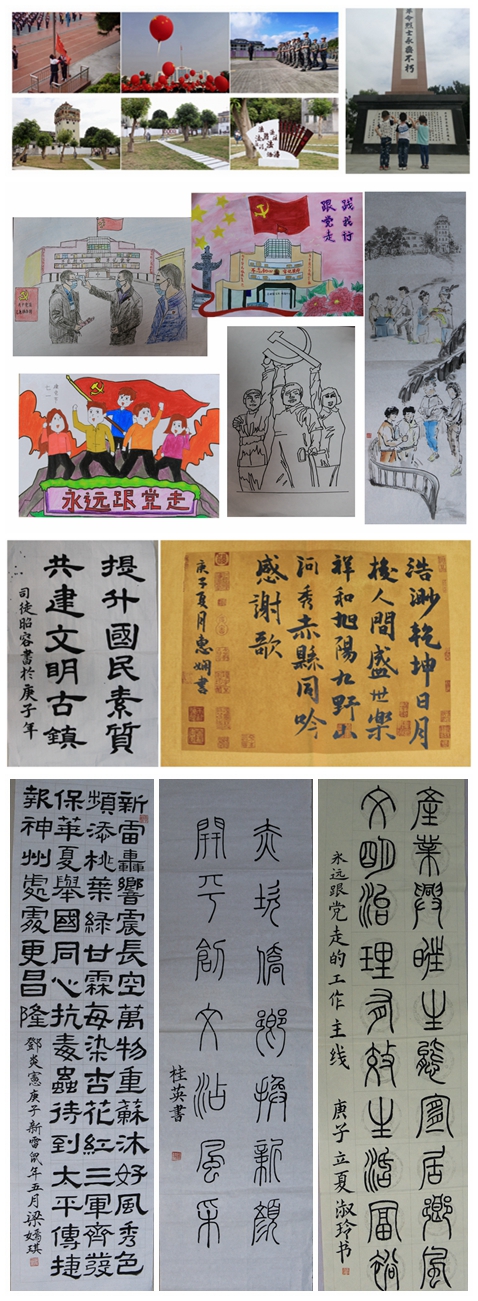 革命烈士永垂不朽
跟党走
永远跟党走
提升國民素質
共建文明古鎮
司徒昭容書於庚子年
浩渺乾坤日月
梭人間盛世樂
祥和旭陽九野山
河秀赤縣同吟
感謝歌
庚子夏月惠嫻書
新雷轟響震長空萬物重蘇沐好風秀色
頻添桃葉綠甘霖每染杏花紅三軍齊發
保華夏舉國同心抗毒蟲待到太平傳捷
報神州處處更昌隆
鄧炎憲庚子新雷鼠年五月梁嫣琪
赤坎僑鄉換新顏
開平創文沾風采
桂英書
產業興旺生態宜居鄉風
文明治理有效生活富裕
永远跟党走的工作主线 庚子立夏淑玲书